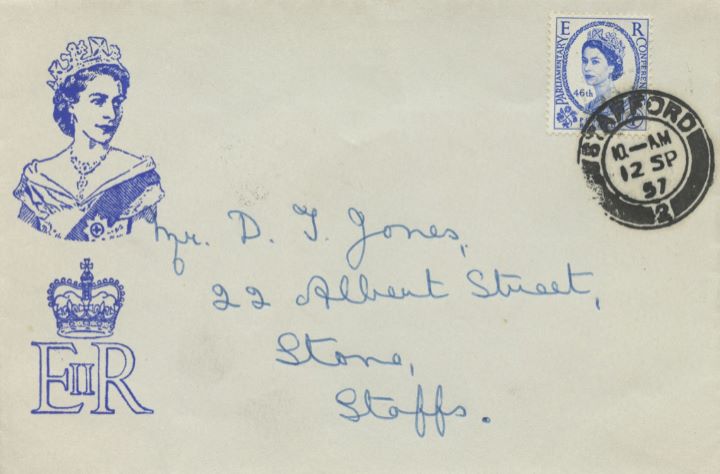 E R
PARLIAMENTARY
CONFERENCE
46th
STAFFORD
10.—AM
12 SP
57
2
Mr. D. T. Jones,
22 Albert Street,
Stone,
Staffs.
EIIR